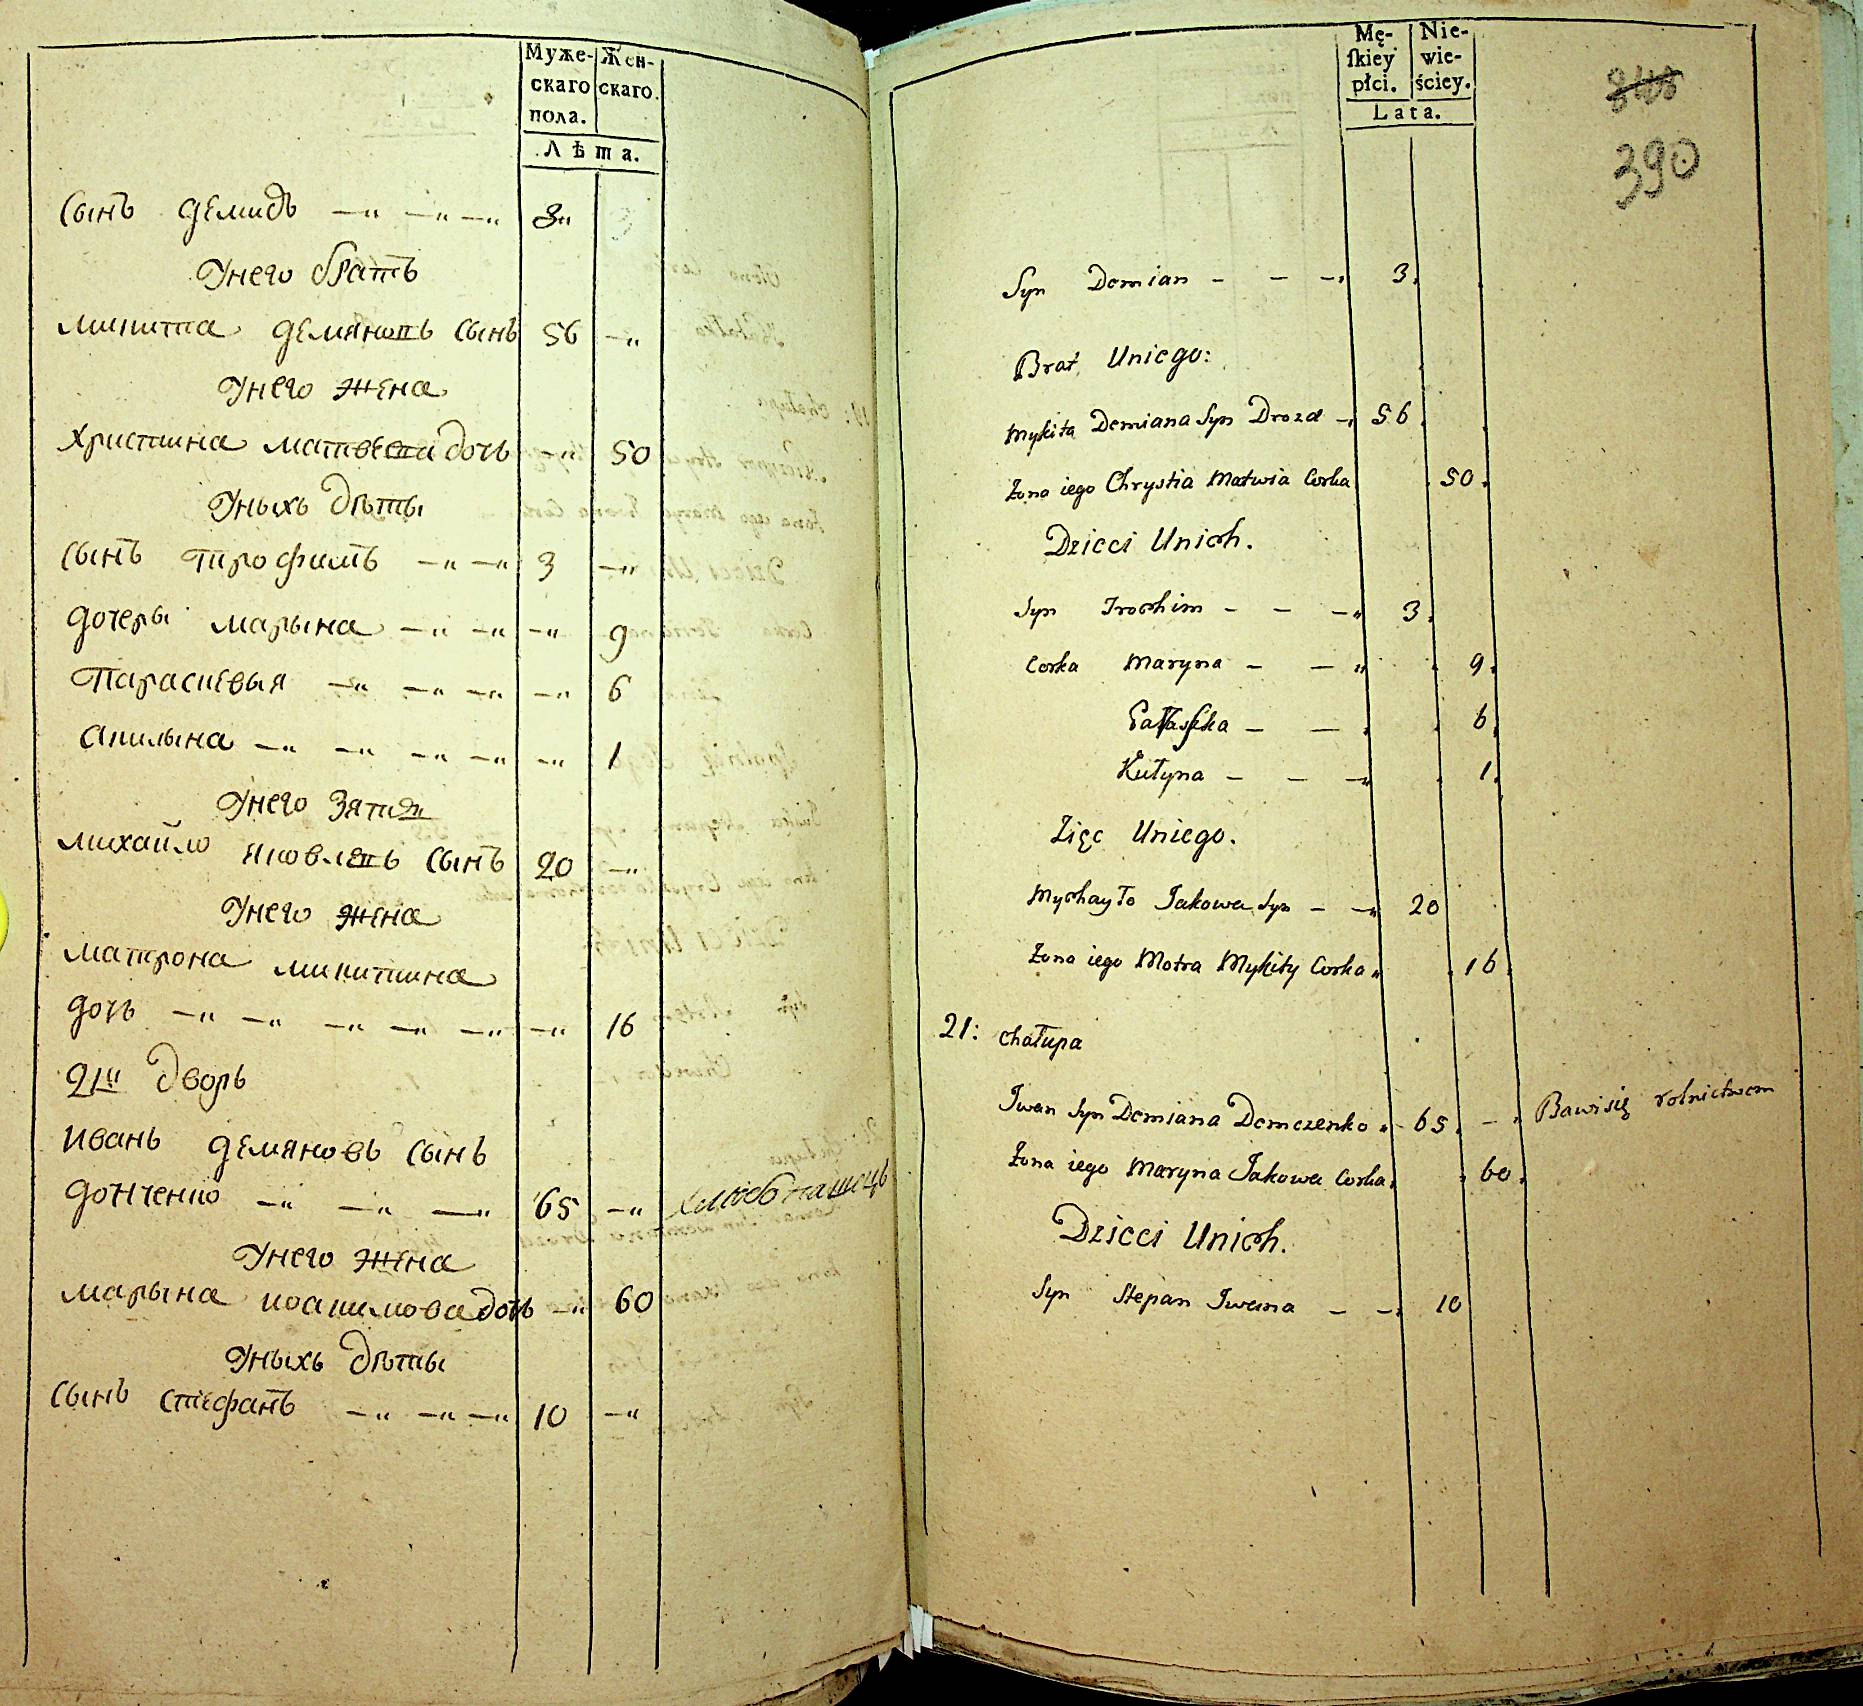 Муже-
скаго
пола.
Жен-
скаго.
Лѣта.
Сынъ Демидъ —„ —„ —„ 3„
Унего братъ
Микита Демяновъ Сынъ 56 —„
Унего жена
Христина Матвеева дочь —„ 50
Уныхъ дѣты
Сынъ Трофимъ —„ —„ 3 —„
Дочеры Марына —„ —„ —„ 9
Параскевыя —„ —„ —„ —„ 6
Акилына —„ —„ —„ —„ —„ 1
Унего Зять
Михайло Яковлевъ Сынъ 20 —„
Унего жена
Матрона Микитина
дочь —„ —„ —„ —„ —„ —„ 16
21й дворъ
Иванъ Демяновъ Сынъ
Донченко —„ —„ —„ 65 —„ хлѣбопашецъ
Унего жена
Марына Иоакимова дочь —„ 60
Уныхъ дѣты
Сынъ Стефанъ —„ —„ —„ 10 —„
Mę-
ſkiey
płci.
Nie-
wie-
ściey.
Lata.
390
Syn Demian — — —„ 3.
Brat Uniego:
Mykita Demiana Syn Drozd —„ 56.
Żona iego Chrystia Matwia Corka . 50.
Dzieci Unich.
Syn Trochim — — —„ 3.
Corka Maryna — —„ . 9.
Paraſka — — . . 6.
Kułyna — — —„ . 1.
Zięc Uniego.
Mychayło Jakowa Syn — —„ 20
Żona iego Motra Mykity Corka „ . 16.
21: Chałupa
Iwan Syn Demiana Demczenko „ 65. —„ Bawi się rolnictwem
Żona iego Maryna Jakowa Corka. . 60.
Dzieci Unich.
Syn Stepan Iwana — —„ 10